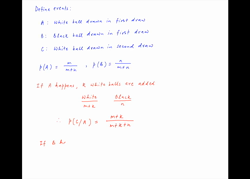 Define events:
A: White ball drawn in first draw
B: Black ball drawn in first draw
C: White ball drawn in second draw
P(A) = m/m+n , P(B) = n/m+n
If A happens, K white balls are added
White Black
m+k n
∴ P(C/A) = m+k/m+k+n
If B h